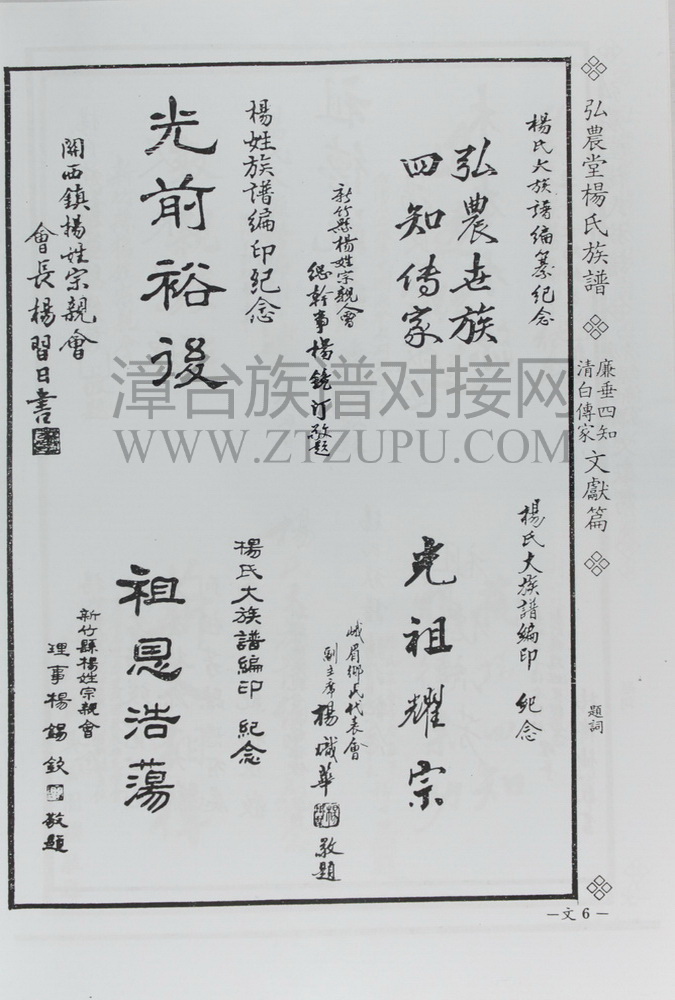 弘農堂楊氏族譜
廉垂四知
清白傳家
文獻篇
題詞
楊氏大族譜編纂紀念
弘農世族
四知傳家
新竹縣楊姓宗親會
總幹事楊鏡汀敬題
楊姓族譜編印紀念
光前裕後
關西鎮楊姓宗親會
會長楊習日書
楊氏大族譜編印 紀念
光祖耀宗
峨眉鄉民代表會
副主席楊熾華
敬題
楊氏大族譜編印 紀念
祖恩浩蕩
新竹縣楊姓宗親會
理事楊錫欽
敬題
漳台族谱对接网
WWW.ZTZUPU.COM
—文6—